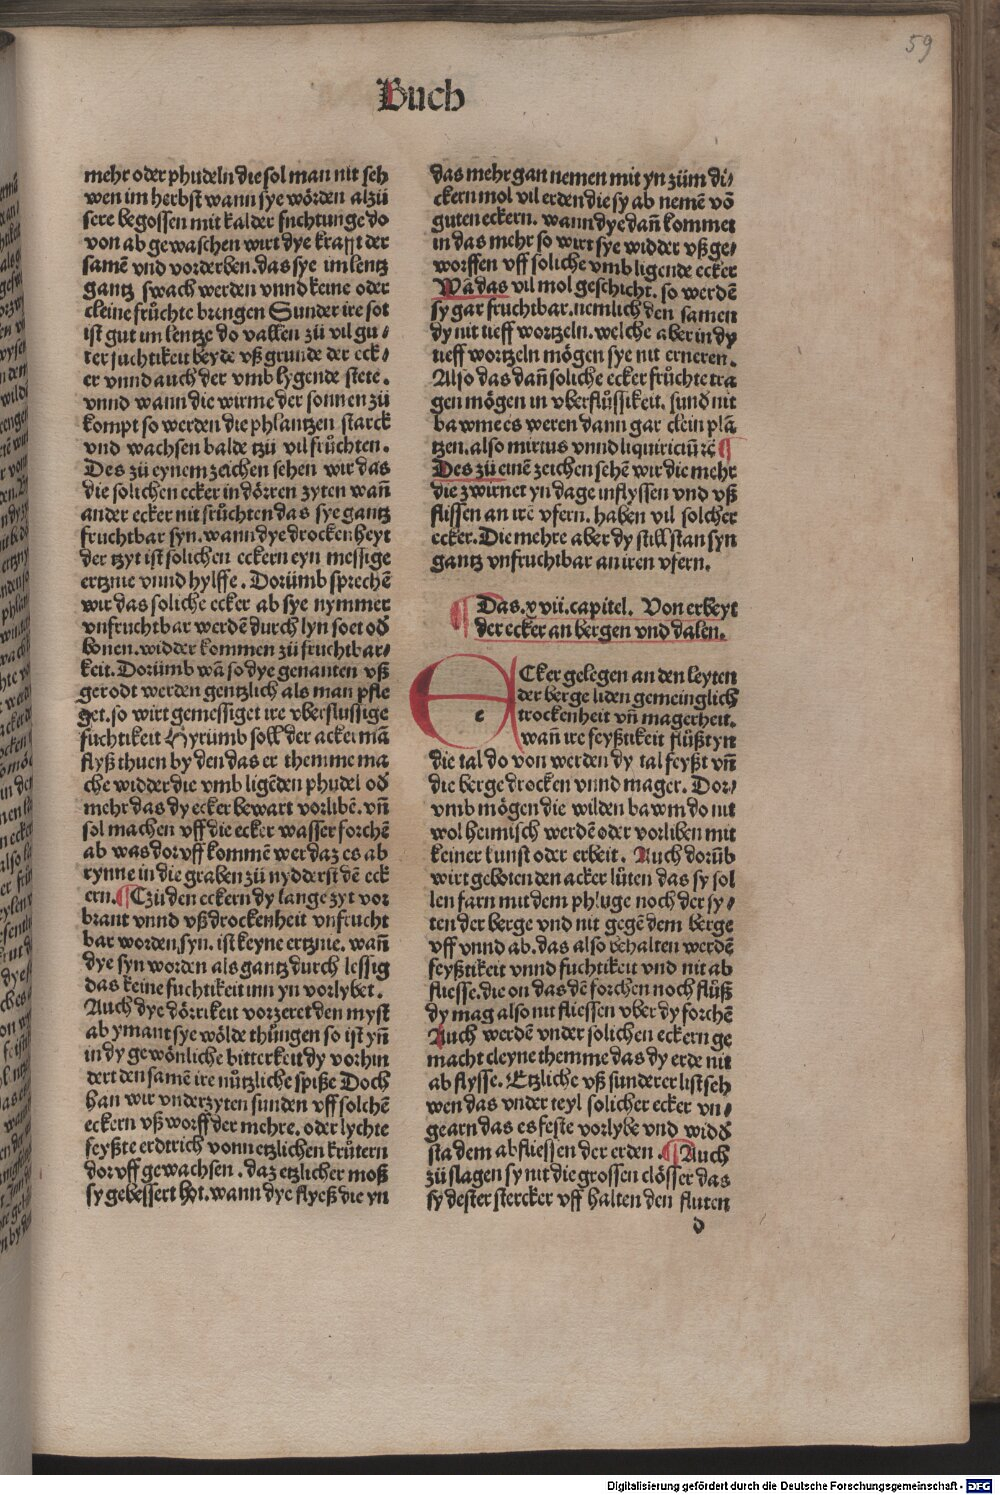 59
Buch
mehr oder phudeln die sol man nit seh
wen im herbst wann sye wörden alzü
sere begossen mit kalder fuchtunge do
von ab gewaschen wirt dye krafft der
samē vnd vorderben. das sye im lentz
gantz swach werden vnnd keine oder
cleine frůchte brengen Sunder ire sot
ist gut im lentze do vallen zü vil gu-
ter fuchtikeit beyde vß grunde der eck-
er vnnd auch der vmb lygende stete.
vnnd wann die wirme der sonnen zü
kompt so werden die phlantzen starck
vnd wachsen balde tzü vil frůchten.
Des zü eynem zachen sehen wir das
die solichen ecker in dörren zyten wañ
ander ecker nit frůchten das sye gantz
fruchtbar syn. wann dye drockenheyt
der tzyt ist solichen eckern eyn messige
ertznie vnnd hylffe. Dorümb sprechē
wir das soliche ecker ab sye nymmer
vnfruchtbar werdē durch lyn soet od̕
bonen. widder kommen zü fruchtbar-
keit. Dorümb wā so dye genanten vß
gerodt werden gentzlich als man pfle
get. so wirt gemessiget ire vberflussige
fuchtikeit Hyrümb soll der acker mā
flyß thuen by den das er themme ma
che widder die vmb ligēden phudel od̕
mehr das dy ecker bewart vorlibē. vñ
sol machen vff die ecker wasser forchē
ab was dor vff kommē wer daz es ab
rynne in die graben zü nydderst dē eck
ern. ¶ Czü den eckern dy lange zyt vor
brant vnnd vß drockenheit vnfrucht
bar worden, syn. ist keyne ertznie. wañ
dye syn worden als gantz durch lessig
das keine fuchtikeit inn yn vorlybet.
Auch dye dörrikeit vorzeret den myst
ab ymant sye wölde thüngen so ist yñ
in dy gewönliche bitterkeit dy vorhin
dert den samē ire nůtzliche spiße Doch
han wir vnderzyten funden vff solchē
eckern vß worff der mehre. oder lychte
feyßte erdtrich vonn etzlichen krůtern
dor vff gewachsen. daz etzlicher moß
sy gebessert hot. wann dye flyeß die yn
das mehr gan nemen mit yn züm di-
ckern mol vil erden die sy ab nemē vō
guten eckern. wann dye dañ kommet
in das mehr so wirt sye widder vß ge-
worffen vff soliche vmb ligende ecker
Wā das vil mol geschicht. so werdē
sy gar fruchtbar. nemlich den samen
dy nit tieff wortzeln. welche aber in dy
tieff wortzeln mögen sye nit erneren.
Also das dañ soliche ecker frůchte tra
gen mögen in vberflůssikeit. sund nit
bawme es weren dann gar clein plā
tzen. also mirtus vnnd liquiricīū rē ¶
Des zü einē zeichen sehē wir die mehr
die zwirnet yn dage inflyssen vnd vß
flissen an irē vfern. haben vil solcher
ecker. Die mehre aber dy still stan syn
gantz vnfruchtbar an iren vfern.
¶ Das. xvii. capitel. Von erbeyt
der ecker an bergen vnd dalen.
e
ECker gelegen an den leyten
der berge liden gemeinglich
trockenheit vñ magerheit.
wañ ire feyßtikeit flůßt yn
die tal do von werden dy tal feyßt vñ
die berge drocken vnnd mager. Dor-
vmb mögen die wilden bawm do nit
wol heimisch werdē oder vorliben mit
keiner kunst oder erbeit. Auch dorūb
wirt geboten den acker lůten das sy sol
len farn mit dem phluge noch der sy-
ten der berge vnd nit gegē dem berge
vff vnnd ab. das also behalten werdē
feyßtikeit vnnd fuchtikeit vnd nit ab
fliesse. die on das dē forchen noch flůß
dy mag also nit fliessen vber dy forchē
Auch werdē vnder solichen eckern ge
macht cleyne themme das dy erde nit
ab flysse. Etzliche vß sunderer list seh
wen das vnder teyl solicher ecker vn-
gearn das es feste vorlybe vnd widd̕
sta dem abfliessen der erden. ¶ Auch
zü slagen sy nit die grossen clösser das
sy dester stercker vff halten den fluten
d
Digitalisierung gefördert durch die Deutsche Forschungsgemeinschaft - DFG